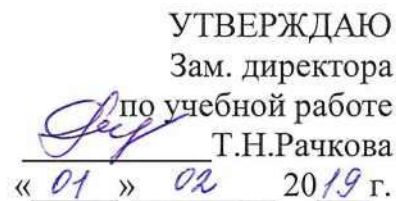 УТВЕРЖДАЮ
Зам. директора
по учебной работе
Т.Н.Рачкова
« 01 » 02 2019 г.